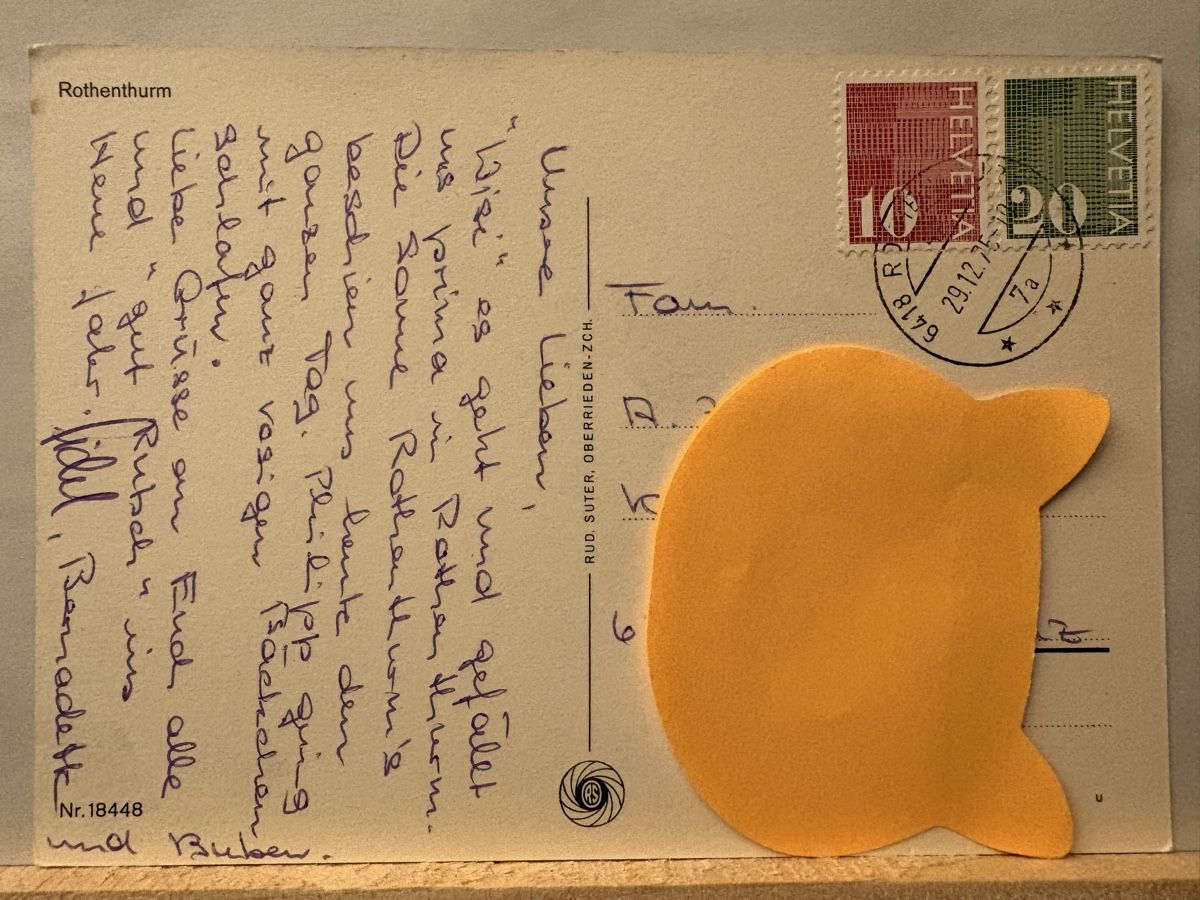 Rothenthurm
Unsere Lieben,
"Wisi" es geht und gefällt
uns prima in Rothenthurm.
Die Sonne Rothenthurm's
beschien uns heute den
ganzen Tag. Philipp ging
mit ganz rosigen Bäckchen
schlafen.
Liebe Grüsse an Euch alle
und "gut Rutsch" ins
Neue Jahr.
Fidel, Bernadette
und Buben.
Nr. 18448
RUD. SUTER, OBERRIEDEN-ZCH.
RS
HELVETIA
10
HELVETIA
20
6418 R
29.12.75
7a
Fam.
A.
K
6
nz
u